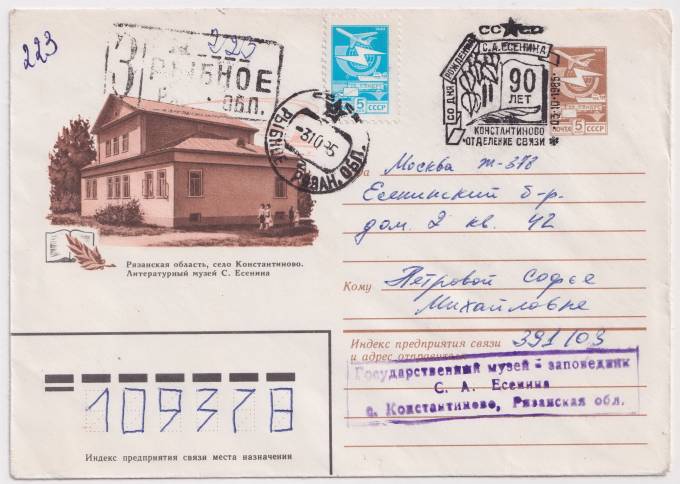 223
З 223
РЫБНОЕ
ОБЛ.
5 СССР
СССР
СО ДНЯ РОЖДЕНИЯ
С. А. ЕСЕНИНА
90
ЛЕТ
КОНСТАНТИНОВО
ОТДЕЛЕНИЕ СВЯЗИ
03.10.1985
ПОЧТА 5 СССР
РЫБНОЕ
-31085
РЯЗАН. ОБЛ.
Москва т-378
Есенинский б-р.
дом. 2 кв. 42
Рязанская область, село Константиново.
Литературный музей С. Есенина
Кому Петровой Софье
Михайловне
Индекс предприятия связи 391103
и адрес отправителя
Государственный музей - заповедник
С. А. Есенина
с. Константиново, Рязанская обл.
109378
Индекс предприятия связи места назначения